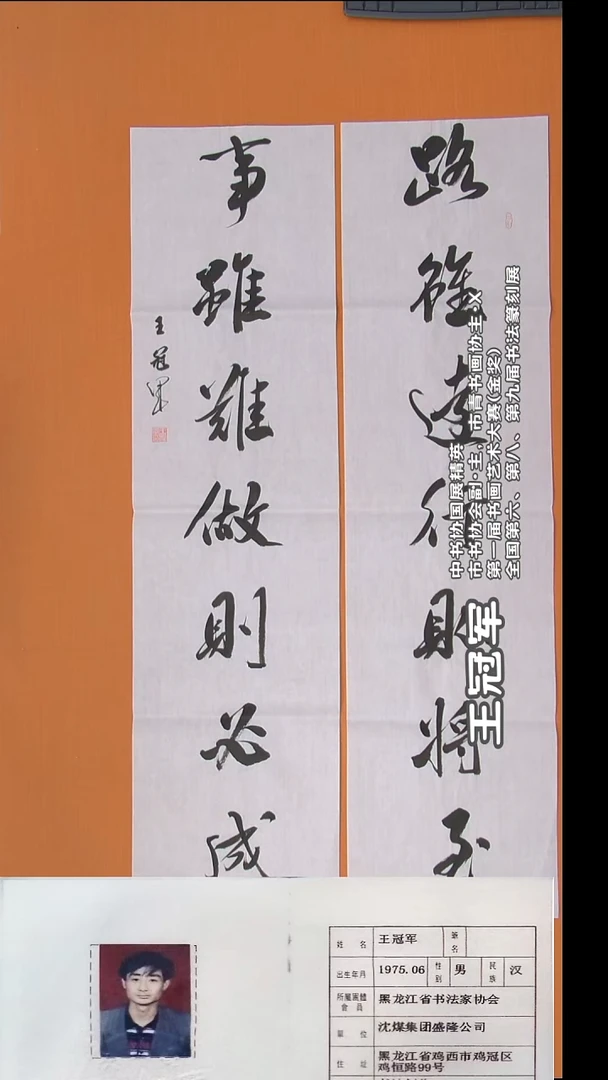 路雖遠行則將至
事雖難做則必成
王冠軍
中书协国展精英
市书协会副·主，市青书画协主xx
第一届书画艺术大赛(金奖)
全国第六、第八、第九届书法篆刻展
王冠军
姓名 王冠军 筆名
出生年月 1975.06 性别 男 民族 汉
所屬團體會員 黑龙江省书法家协会
單位 沈煤集团盛隆公司
住址 黑龙江省鸡西市鸡冠区鸡恒路99号